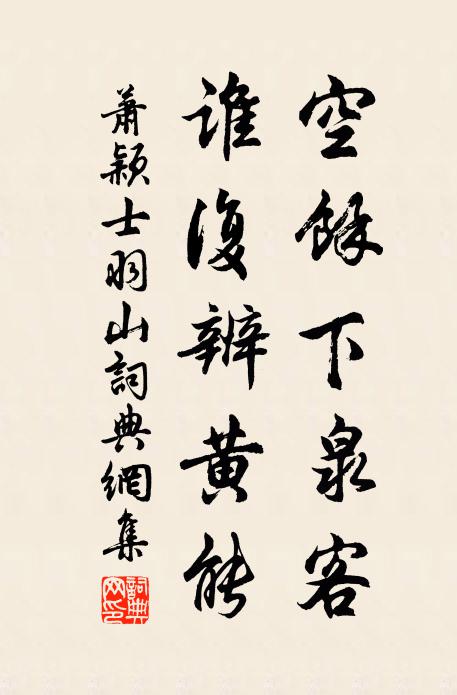 空餘下泉客
誰復辨黃能
蕭穎士羽山詞典網集
詞典网印